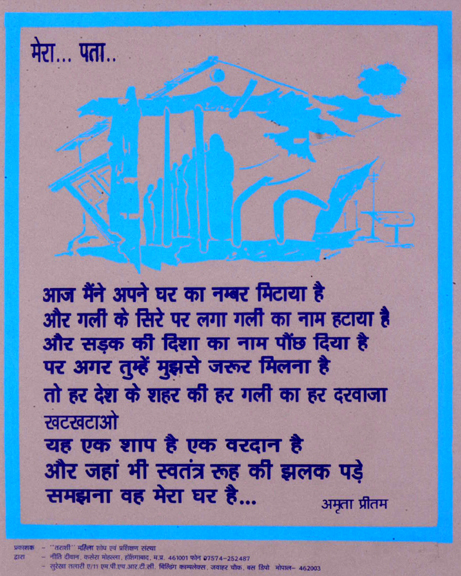 मेरा... पता..
आज मैंने अपने घर का नम्बर मिटाया है
और गली के सिरे पर लगा गली का नाम हटाया है
और सड़क की दिशा का नाम पौंछ दिया है
पर अगर तुम्हें मुझसे जरूर मिलना है
तो हर देश के शहर की हर गली का हर दरवाजा
खटखटाओ
यह एक शाप है एक वरदान है
और जहां भी स्वतंत्र रूह की झलक पड़े
समझना वह मेरा घर है...
अमृता प्रीतम
प्रकाशक - महिला शोध एवं प्रशिक्षण संस्था
द्वारा - दीवान, कसेरा मोहल्ला, होशंगाबाद, म.प्र. 461001 फोन 07574-252487
- एच.आई.जी. बिल्डिंग काम्पलेक्स, जवाहर चौक, बस डिपो भोपाल- 462003